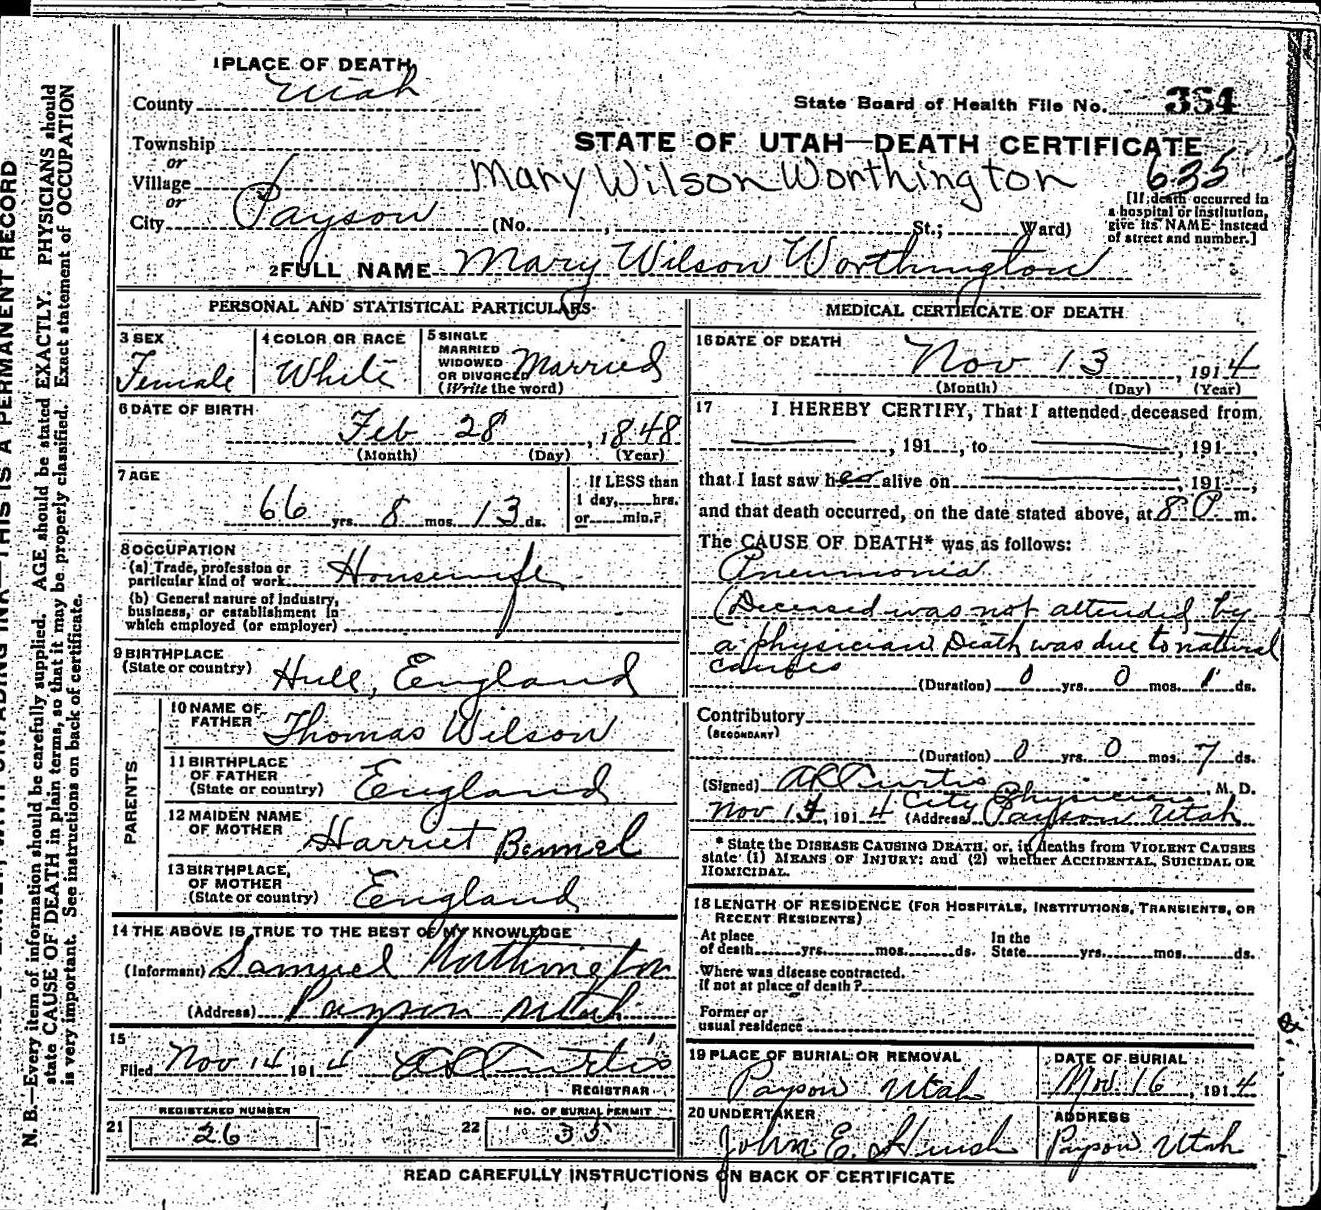 1 PLACE OF DEATH
County Utah
State Board of Health File No. 354
Township
or
Village
or
City Payson
STATE OF UTAH—DEATH CERTIFICATE
Mary Wilson Worthington 635
(No. , St.; Ward)
[If death occurred in
a hospital or institution,
give its NAME instead
of street and number.]
2 FULL NAME Mary Wilson Worthington
PERSONAL AND STATISTICAL PARTICULARS
3 SEX
Female
4 COLOR OR RACE
White
5 SINGLE
MARRIED
WIDOWED
OR DIVORCED Married
(Write the word)
6 DATE OF BIRTH
Feb 28, 1848
(Month) (Day) (Year)
7 AGE
66 yrs. 8 mos. 13 ds.
If LESS than
1 day, hrs.
or min.?
8 OCCUPATION
(a) Trade, profession or
particular kind of work Housewife
(b) General nature of industry,
business, or establishment in
which employed (or employer)
9 BIRTHPLACE
(State or country) Hull, England
PARENTS
10 NAME OF
FATHER Thomas Wilson
11 BIRTHPLACE
OF FATHER
(State or country) England
12 MAIDEN NAME
OF MOTHER Harriet
13 BIRTHPLACE,
OF MOTHER
(State or country) England
14 THE ABOVE IS TRUE TO THE BEST OF MY KNOWLEDGE
(Informant) Samuel Worthington
(Address) Payson Utah
15
Filed Nov 14 1914 Curtis
REGISTRAR
REGISTERED NUMBER
21 26
NO. OF BURIAL PERMIT
22 35
MEDICAL CERTIFICATE OF DEATH
16 DATE OF DEATH
Nov 13, 1914
(Month) (Day) (Year)
17 I HEREBY CERTIFY, That I attended deceased from
, 191 , to , 191 ,
that I last saw her alive on , 191 ,
and that death occurred, on the date stated above, at 8 P m.
The CAUSE OF DEATH* was as follows:
Pneumonia
(Deceased was not attended by
a physician. Death was due to natural
causes
(Duration) 0 yrs. 0 mos. ds.
Contributory
(SECONDARY)
(Duration) 0 yrs. 0 mos. 7 ds.
(Signed) Curtis, M. D.
City Physician
Nov 1914 (Address) Payson Utah
* State the DISEASE CAUSING DEATH, or, in deaths from VIOLENT CAUSES
state (1) MEANS OF INJURY; and (2) whether ACCIDENTAL, SUICIDAL OR
HOMICIDAL.
18 LENGTH OF RESIDENCE (FOR HOSPITALS, INSTITUTIONS, TRANSIENTS, OR
RECENT RESIDENTS)
At place
of death yrs. mos. ds.
In the
State yrs. mos. ds.
Where was disease contracted.
If not at place of death?
Former or
usual residence
19 PLACE OF BURIAL OR REMOVAL
Payson Utah
DATE OF BURIAL
Nov. 16, 1914
20 UNDERTAKER
John E.
ADDRESS
Payson Utah
READ CAREFULLY INSTRUCTIONS ON BACK OF CERTIFICATE
THIS IS A PERMANENT RECORD
N. B.—Every item of information should be carefully supplied. AGE should be stated EXACTLY. PHYSICIANS should
state CAUSE OF DEATH in plain terms, so that it may be properly classified. Exact statement of OCCUPATION
is very important. See instructions on back of certificate.